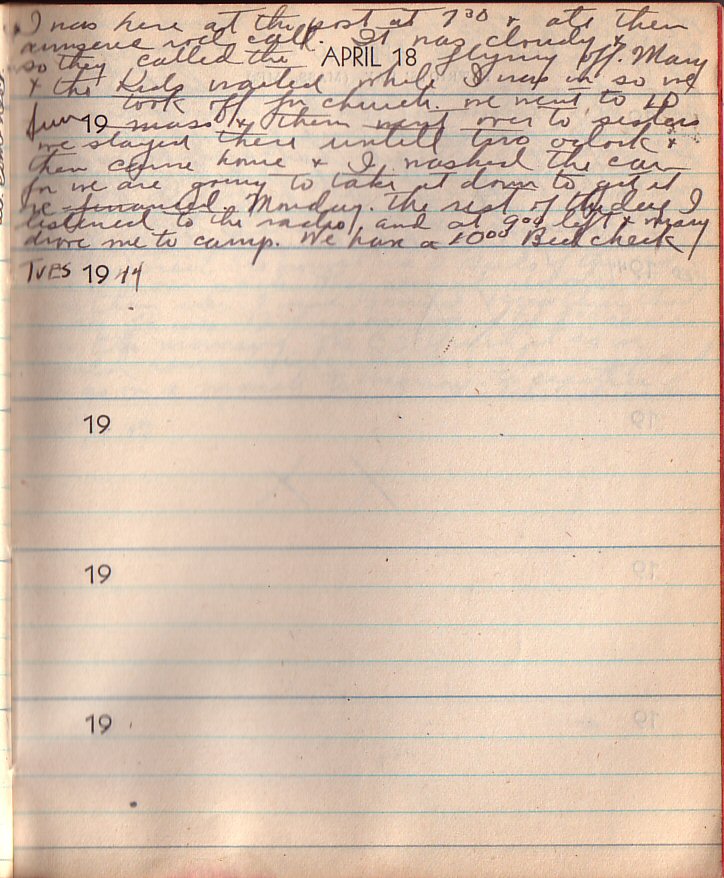 I was here at the post at 7 30 & ate then
answered roll call. It was cloudy &
so they called the flying off. Mary
APRIL 18
& the kids waited while I was in so we
took off for church. we went to 10
Sun 19 mass & then went over to sisters
we stayed there untill two oclock &
then came home & I washed the car
for we are going to take it down to get it
re financed Monday. The rest of the day I
listened to the radio and at 9 00 left & mary
drove me to camp. We have a 10 00 Bed check
TUES 19 44
19
19
19